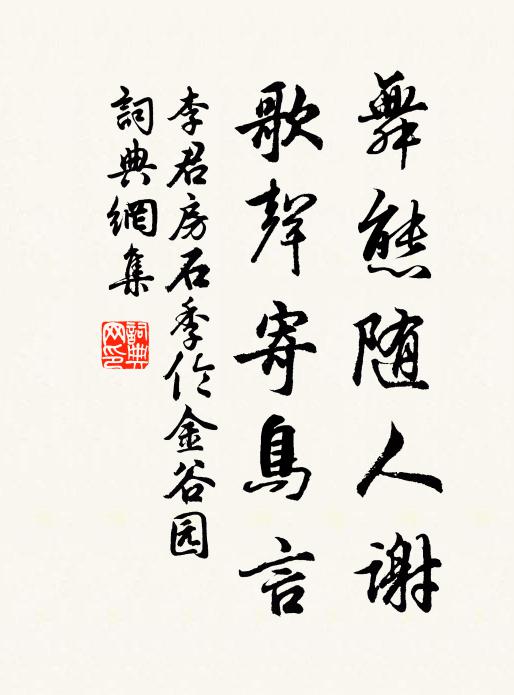 舞態随人謝
歌聲寄鳥言
李君房石季伦金谷园
詞典網集
詞典网印